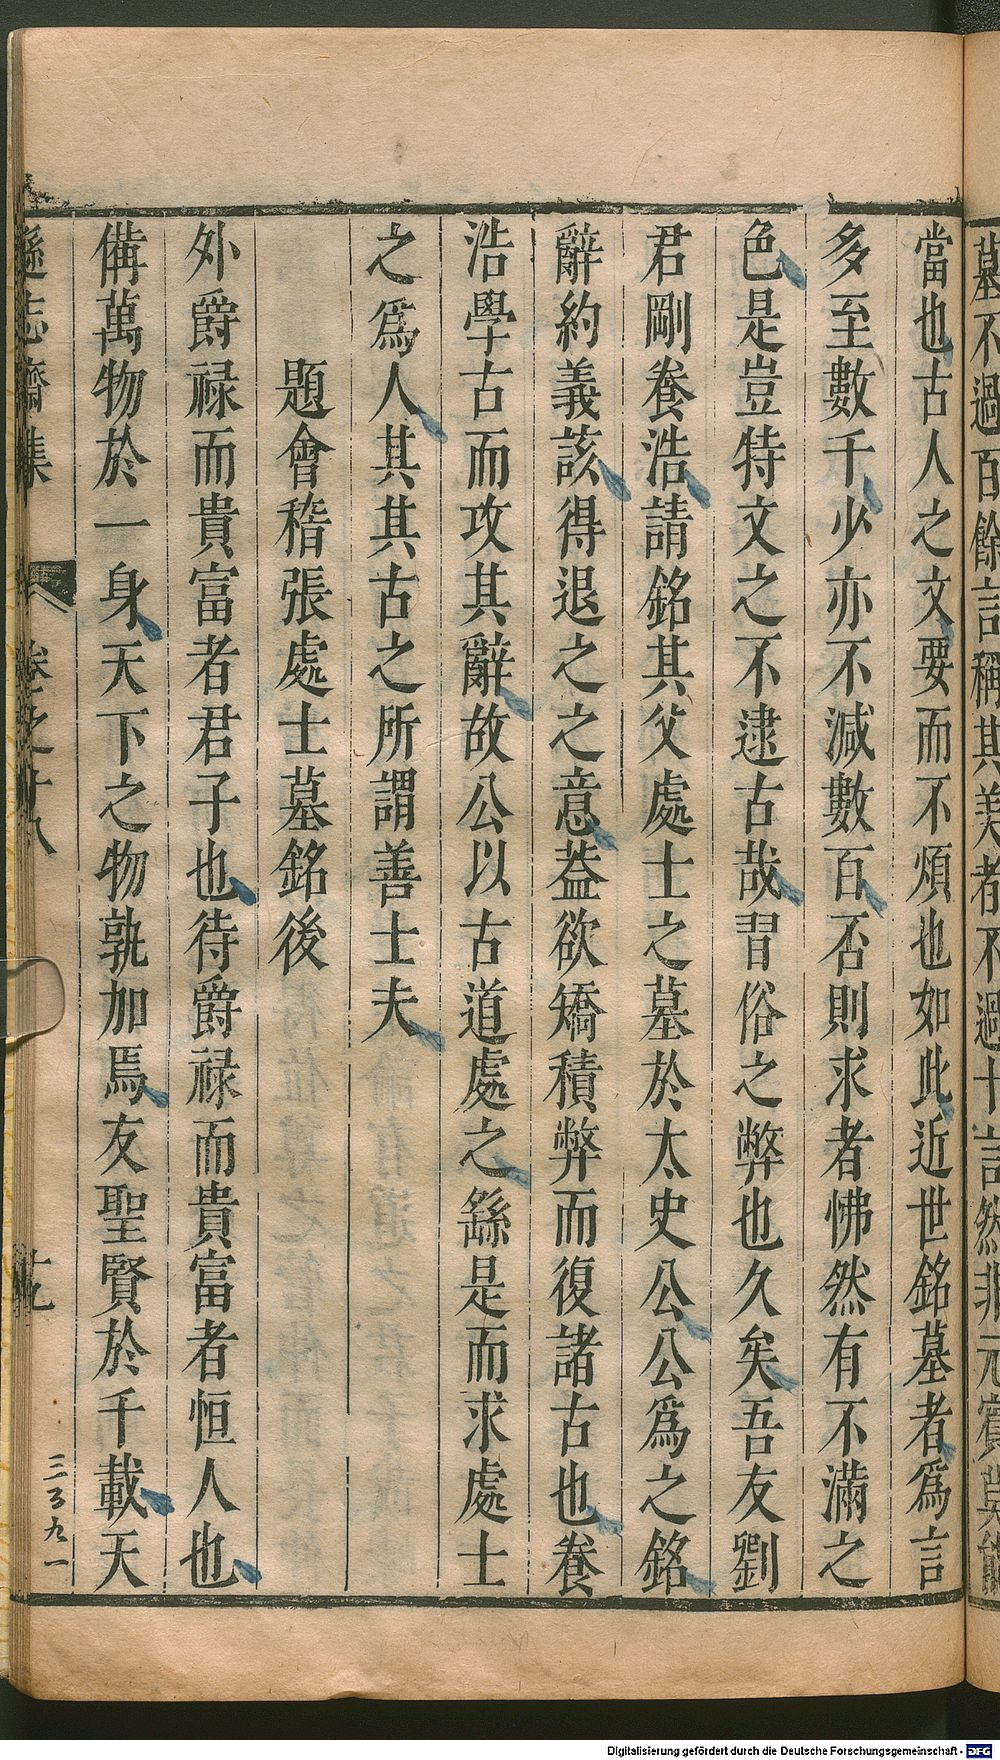 墓不過百餘言稱其美者不過十言然非元賓莫能
當也古人之文要而不煩也如此近世銘墓者爲言
多至數千少亦不減數百否則求者怫然有不滿之
色是豈特文之不逮古哉習俗之弊也久矣吾友劉
君剛養浩請銘其父處士之墓於太史公公爲之銘
辭約義該得退之之意蓋欲矯積弊而復諸古也養
浩學古而攻其辭故公以古道處之繇是而求處士
之爲人其其古之所謂善士夫
題會稽張處士墓銘後
外爵祿而貴富者君子也待爵祿而貴富者恒人也
備萬物於一身天下之物孰加焉友聖賢於千載天
遜志齋集 卷之十八 十九
三百九一
Digitalisierung gefördert durch die Deutsche Forschungsgemeinschaft - DFG